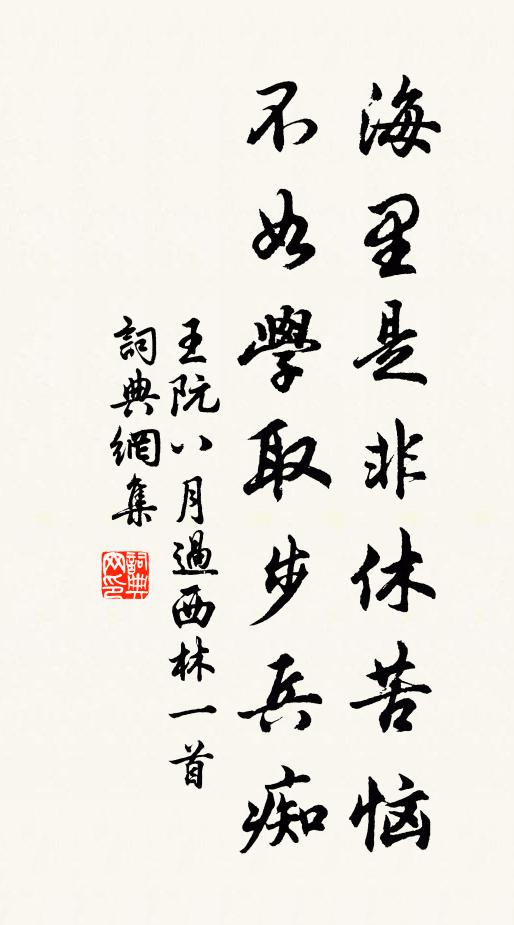 海里是非休苦恼
不如學取步兵痴
王阮八月過西林一首
詞典網集
詞典網印